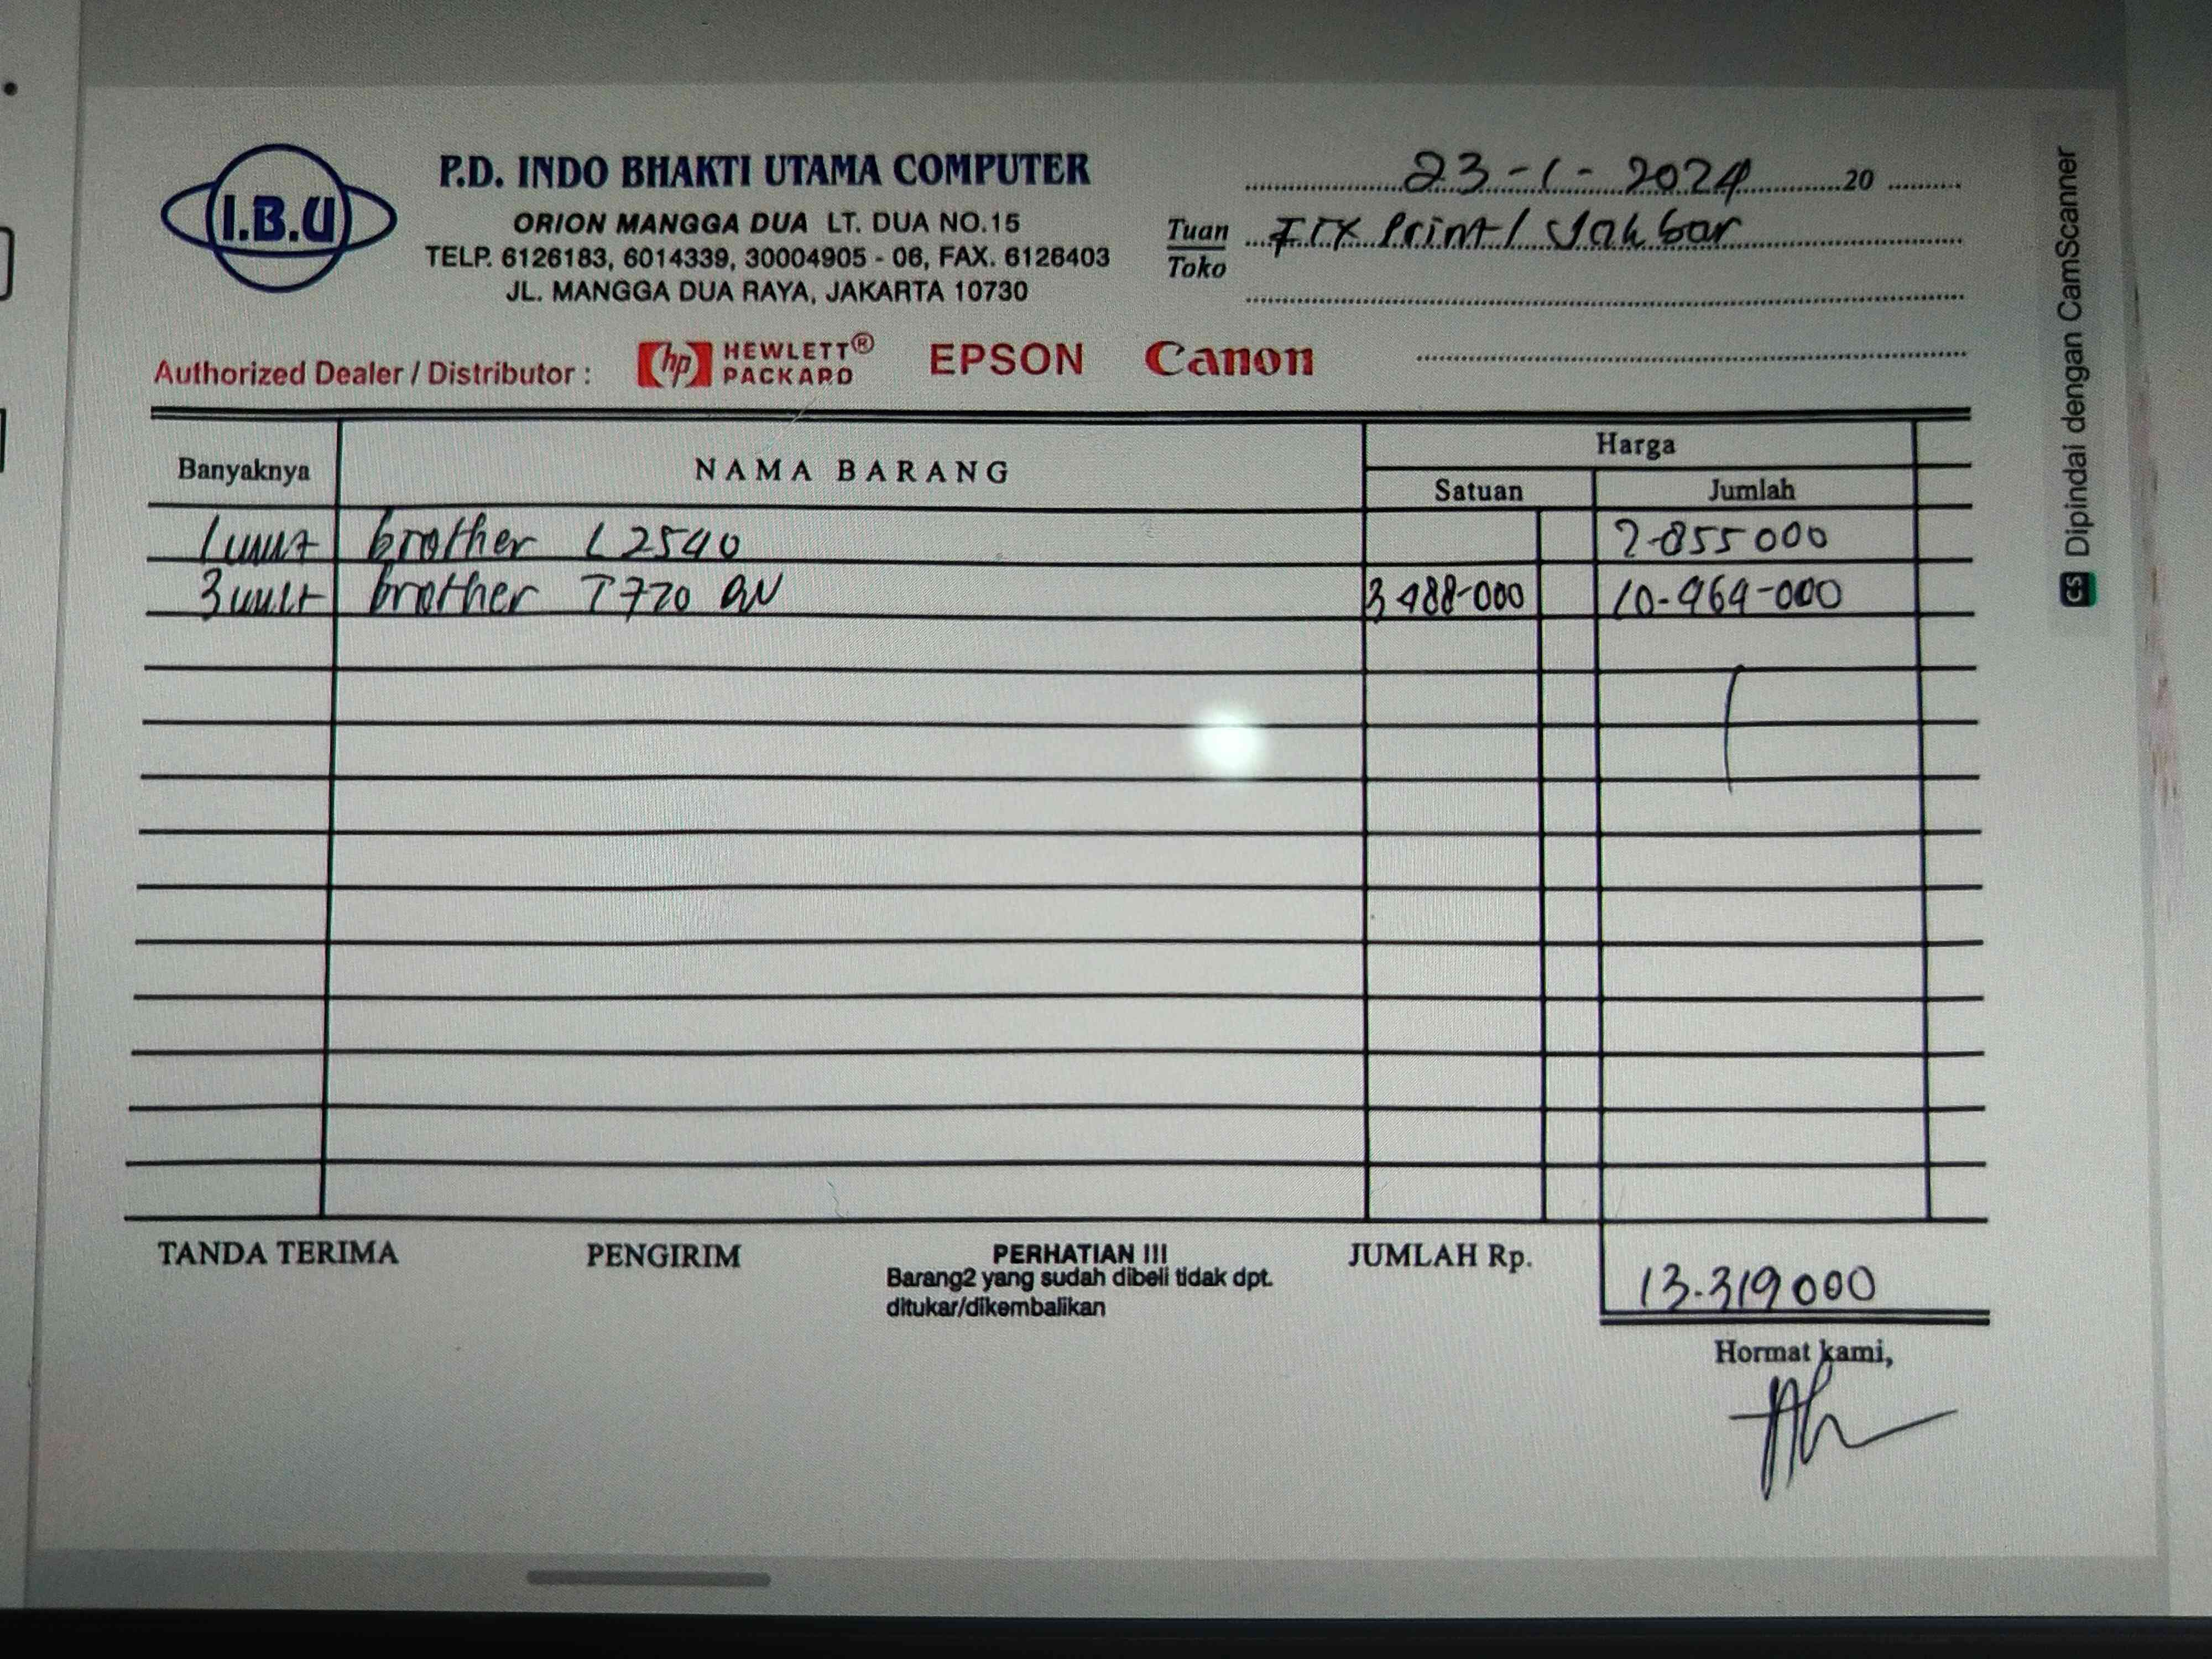 I.B.U
P.D. INDO BHAKTI UTAMA COMPUTER
ORION MANGGA DUA LT. DUA NO.15
TELP. 6126183, 6014339, 30004905 - 06, FAX. 6126403
JL. MANGGA DUA RAYA, JAKARTA 10730
23-1-2024 20
Tuan
Toko
Print / Jakbar
Authorized Dealer / Distributor :
hp HEWLETT®
PACKARD
EPSON
Canon
Banyaknya NAMA BARANG Harga
Satuan Jumlah
1 unit brother L2540 2-855000
3 unit brother T720 3488-000 10-464-000
TANDA TERIMA PENGIRIM PERHATIAN !!! JUMLAH Rp. 13.319000
Barang2 yang sudah dibeli tidak dpt.
ditukar/dikembalikan
Hormat kami,
CS Dipindai dengan CamScanner